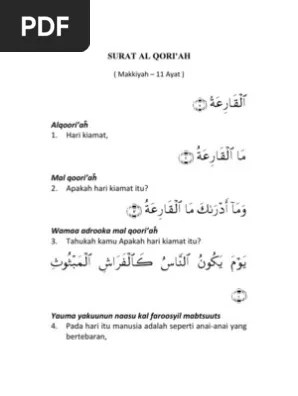 PDF
SURAT AL QORI'AH
( Makkiyah – 11 Ayat )
ٱلْقَارِعَةُ ١
Alqoori'ah
1. Hari kiamat,
مَا ٱلْقَارِعَةُ ٢
Mal qoori'ah
2. Apakah hari kiamat itu?
وَمَآ أَدْرَىٰكَ مَا ٱلْقَارِعَةُ ٣
Wamaa adrooka mal qoori'ah
3. Tahukah kamu Apakah hari kiamat itu?
يَوْمَ يَكُونُ ٱلنَّاسُ كَٱلْفَرَاشِ ٱلْمَبْثُوثِ
٤
Yauma yakuunun naasu kal faroosyil mabtsuuts
4. Pada hari itu manusia adalah seperti anai-anai yang
bertebaran,